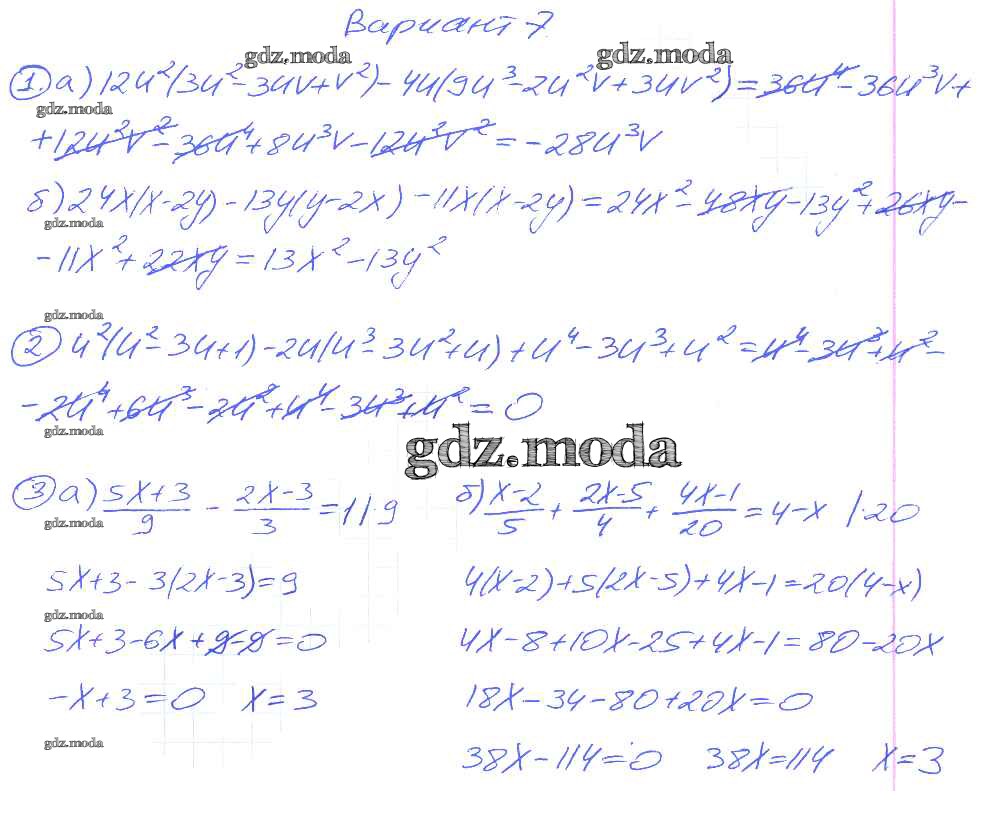 Вариант 7
gdz.moda gdz.moda
1. а) 12u²(3u² - 3uv + v²) - 4u(9u³ - 2u²v + 3uv²) = 36u⁴ - 36u³v +
gdz.moda
+ 12u²v² - 36u⁴ + 8u³v - 12u²v² = -28u³v
б) 24x(x-2y) - 13y(y-2x) - 11x(x-2y) = 24x² - 48xy - 13y² + 26xy -
gdz.moda
- 11x² + 22xy = 13x² - 13y²
gdz.moda
2 u²(u² - 3u + 1) - 2u(u³ - 3u² + u) + u⁴ - 3u³ + u² = u⁴ - 3u³ + u² -
- 2u⁴ + 6u³ - 2u² + u⁴ - 3u³ + u² = 0
gdz.moda
gdz.moda
3 а) (5x+3)/9 - (2x-3)/3 = 1 |·9 б) (x-2)/5 + (2x-5)/4 + (4x-1)/20 = 4-x |·20
gdz.moda
5x+3 - 3(2x-3) = 9 4(x-2) + 5(2x-5) + 4x-1 = 20(4-x)
gdz.moda
5x+3-6x+9-9=0 4x-8+10x-25+4x-1=80-20x
-x+3=0 x=3 18x-34-80+20x=0
gdz.moda
38x-114=0 38x=114 x=3